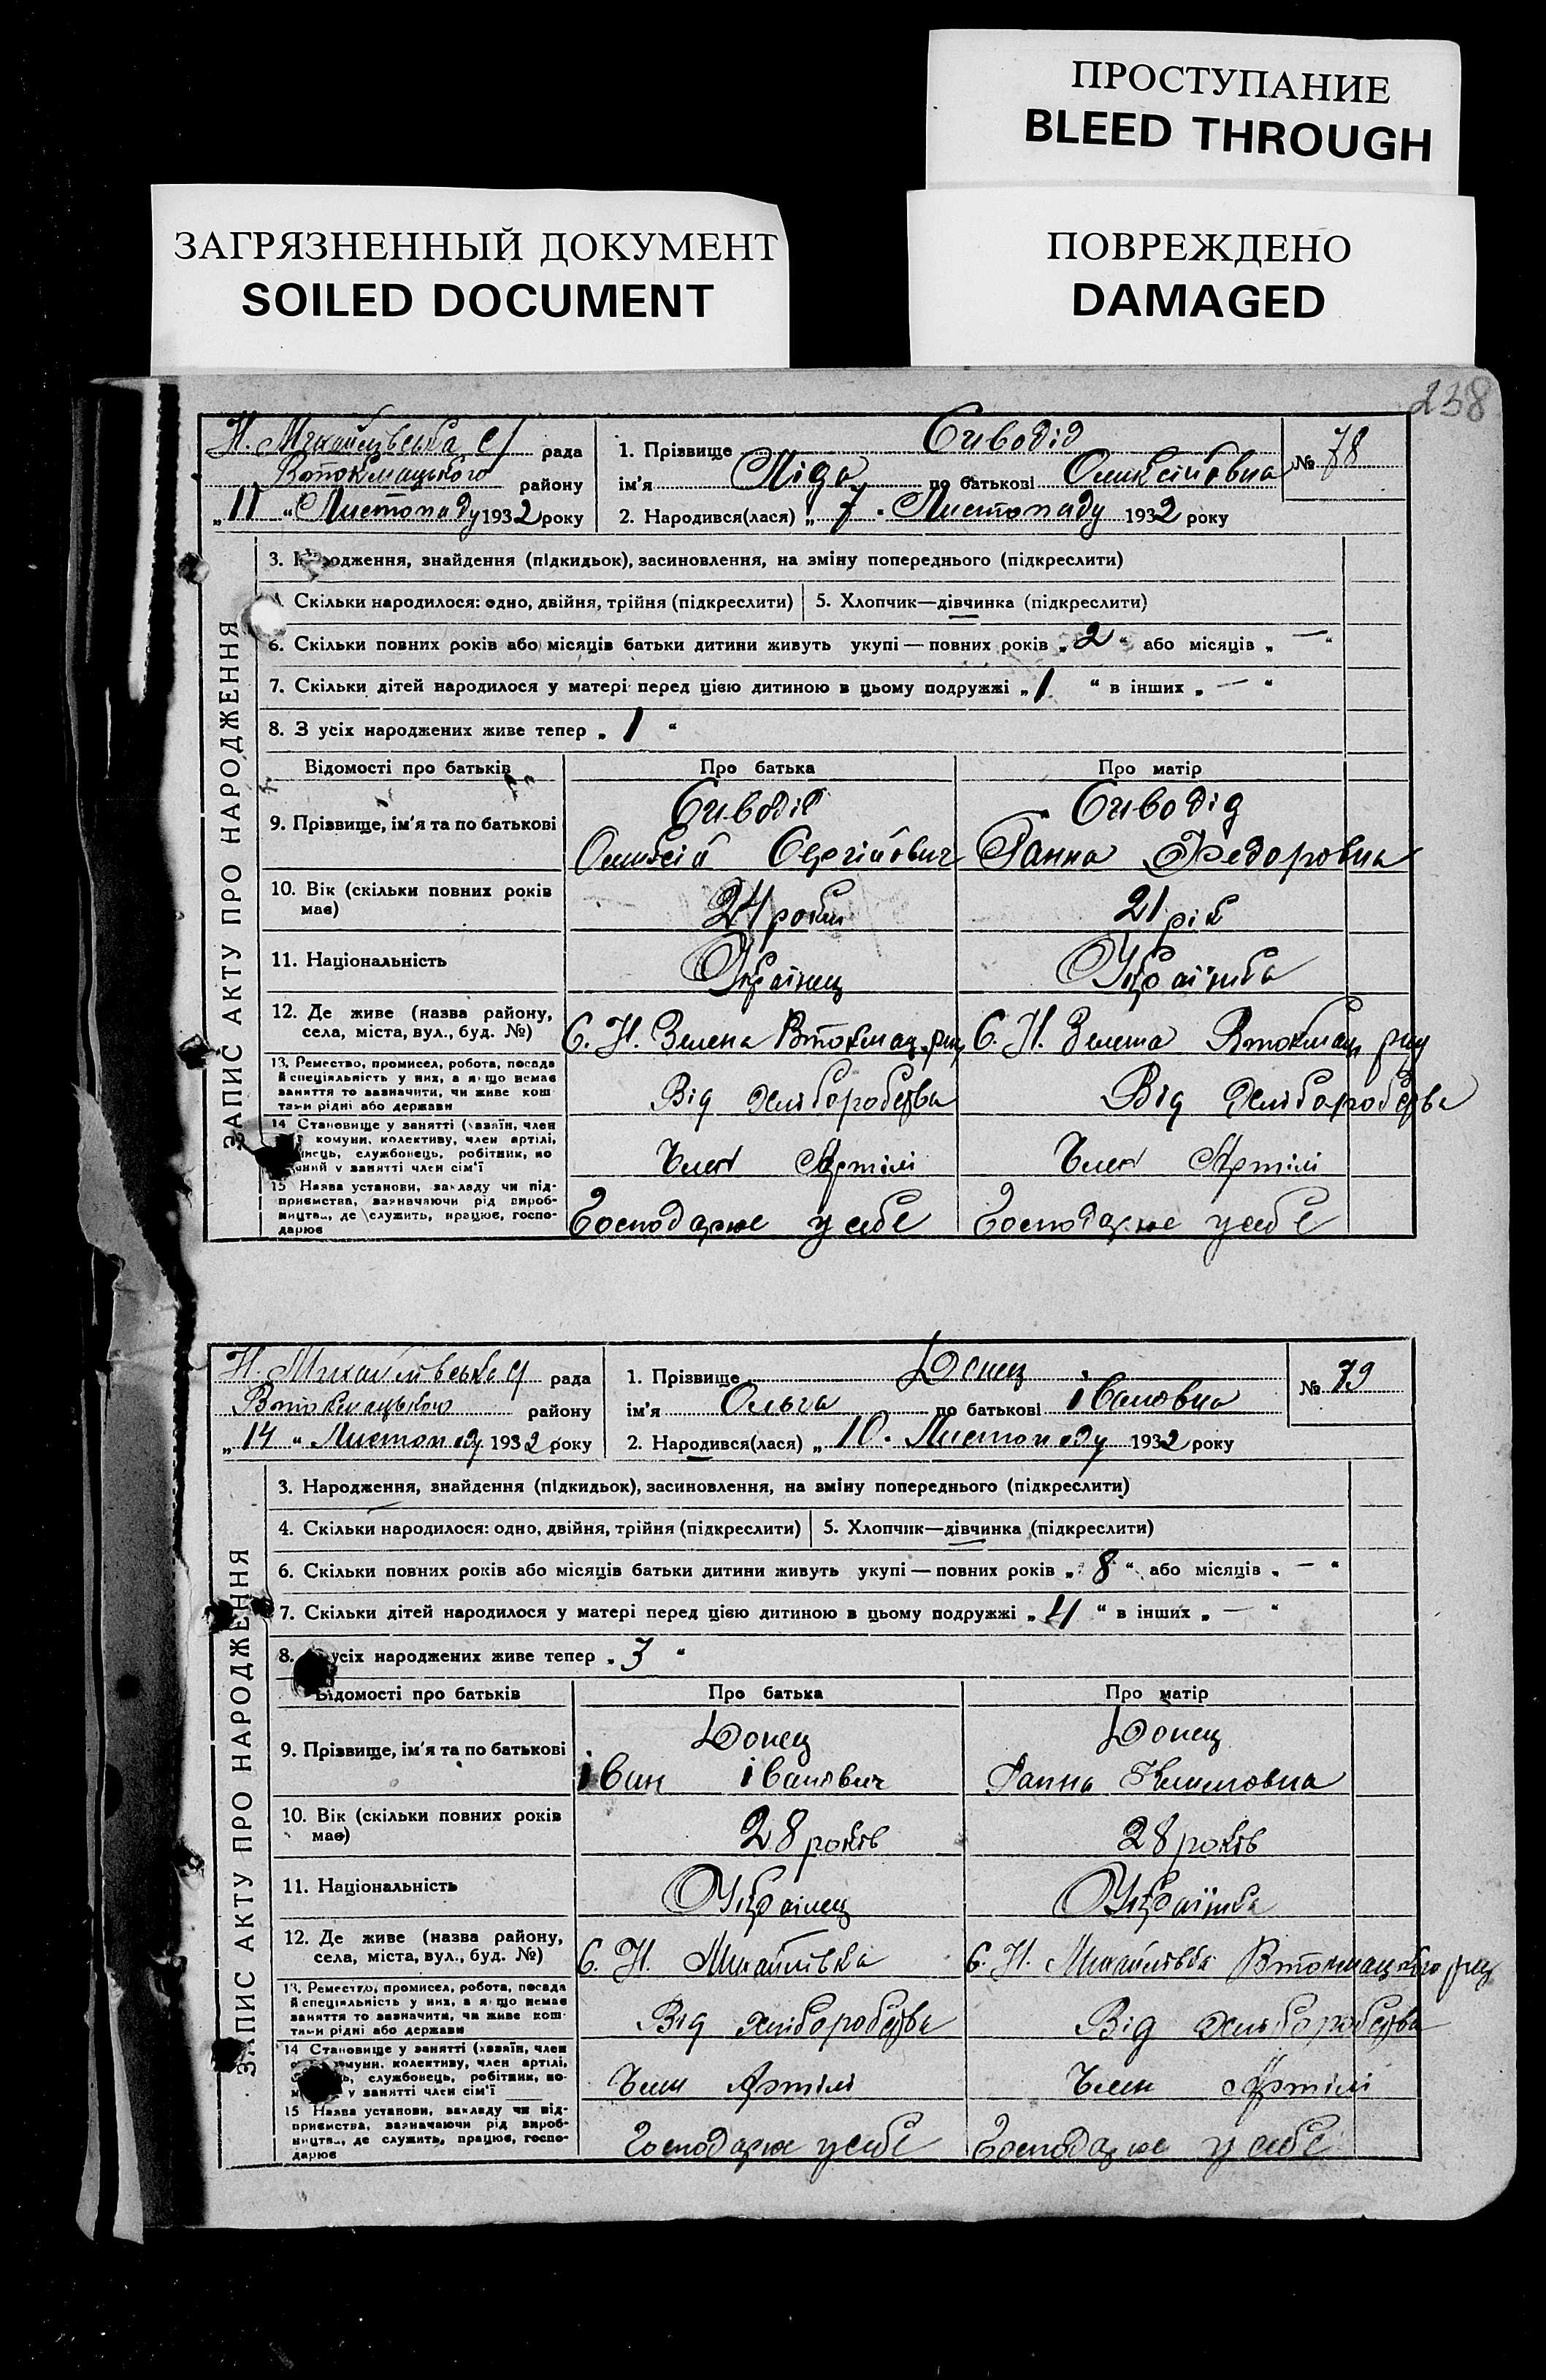 ПРОСТУПАНИЕ
BLEED THROUGH
ЗАГРЯЗНЕННЫЙ ДОКУМЕНТ
SOILED DOCUMENT
ПОВРЕЖДЕНО
DAMAGED
238
Н. Михайлівська с/ рада
Втокмацького району
„11“ Листопаду 1932 року
1. Прізвище Сиводід
ім'я Ліда по батькові Оликсіївна
№ 78
2. Народився(лася) „7. Листопаду 1932 року
ЗАПИС АКТУ ПРО НАРОДЖЕННЯ
3. Народження, знайдення (підкидьок), засиновлення, на зміну попереднього (підкреслити)
4. Скільки народилося: одно, двійня, трійня (підкреслити) 5. Хлопчик—дівчинка (підкреслити)
6. Скільки повних років або місяців батьки дитини живуть укупі — повних років „2“ або місяців „—“
7. Скільки дітей народилося у матері перед цією дитиною в цьому подружжі „1“ в інших „—“
8. З усіх народжених живе тепер „1“
Відомості про батьків Про батька Про матір
9. Прізвище, ім'я та по батькові
Сиводід Сиводід
Оликсій Сергійович Ганна Федоровна
10. Вік (скільки повних років має) 24 роки 21 рік
11. Національність Українец Українка
12. Де живе (назва району, села, міста, вул., буд. №)
С. Н. Зелена Втокмац. рну С. Н. Зелена Втокмац рну
13. Ремество, промисел, робота, посада й спеціяльність у них, а якщо немає заняття то зазначити, чи живе коштами рідні або держави
Від хліборобства Від хліборобства
14 Становище у занятті (хазяїн, член комуни, колективу, член артілі, службовець, робітник, у занятті член сім'ї
Член Артілі Член Артілі
15 Назва установи, закладу чи підприємства, зазначаючи рід виробництва, де служить, працює, господарює
Господарює у себе Господарює у себе
Н. Михайлівська с/ рада
Втокмацького району
„14“ Листопаду 1932 року
1. Прізвище Донец
ім'я Ольга по батькові івановна
№ 79
2. Народився(лася) „10. Листопаду 1932 року
ЗАПИС АКТУ ПРО НАРОДЖЕННЯ
3. Народження, знайдення (підкидьок), засиновлення, на зміну попереднього (підкреслити)
4. Скільки народилося: одно, двійня, трійня (підкреслити) 5. Хлопчик—дівчинка (підкреслити)
6. Скільки повних років або місяців батьки дитини живуть укупі — повних років „8“ або місяців „—“
7. Скільки дітей народилося у матері перед цією дитиною в цьому подружжі „4“ в інших „—“
8. усіх народжених живе тепер „3“
Відомості про батьків Про батька Про матір
9. Прізвище, ім'я та по батькові
Донец Донец
іван іванович Ганна Климовна
10. Вік (скільки повних років має) 28 років 28 років
11. Національність Українец Українка
12. Де живе (назва району, села, міста, вул., буд. №)
С. Н. Михайлівка С. Н. Михайлівка Втокмацького рну
13. Ремество, промисел, робота, посада й спеціяльність у них, а якщо немає заняття то зазначити, чи живе коштами рідні або держави
Від хліборобства Від хліборобства
14 Становище у занятті (хазяїн, член комуни, колективу, член артілі, службовець, робітник, у занятті член сім'ї
Член Артілі Член Артілі
15 Назва установи, закладу чи підприємства, зазначаючи рід виробництва, де служить, працює, господарює
Господарює у себе Господарює у себе